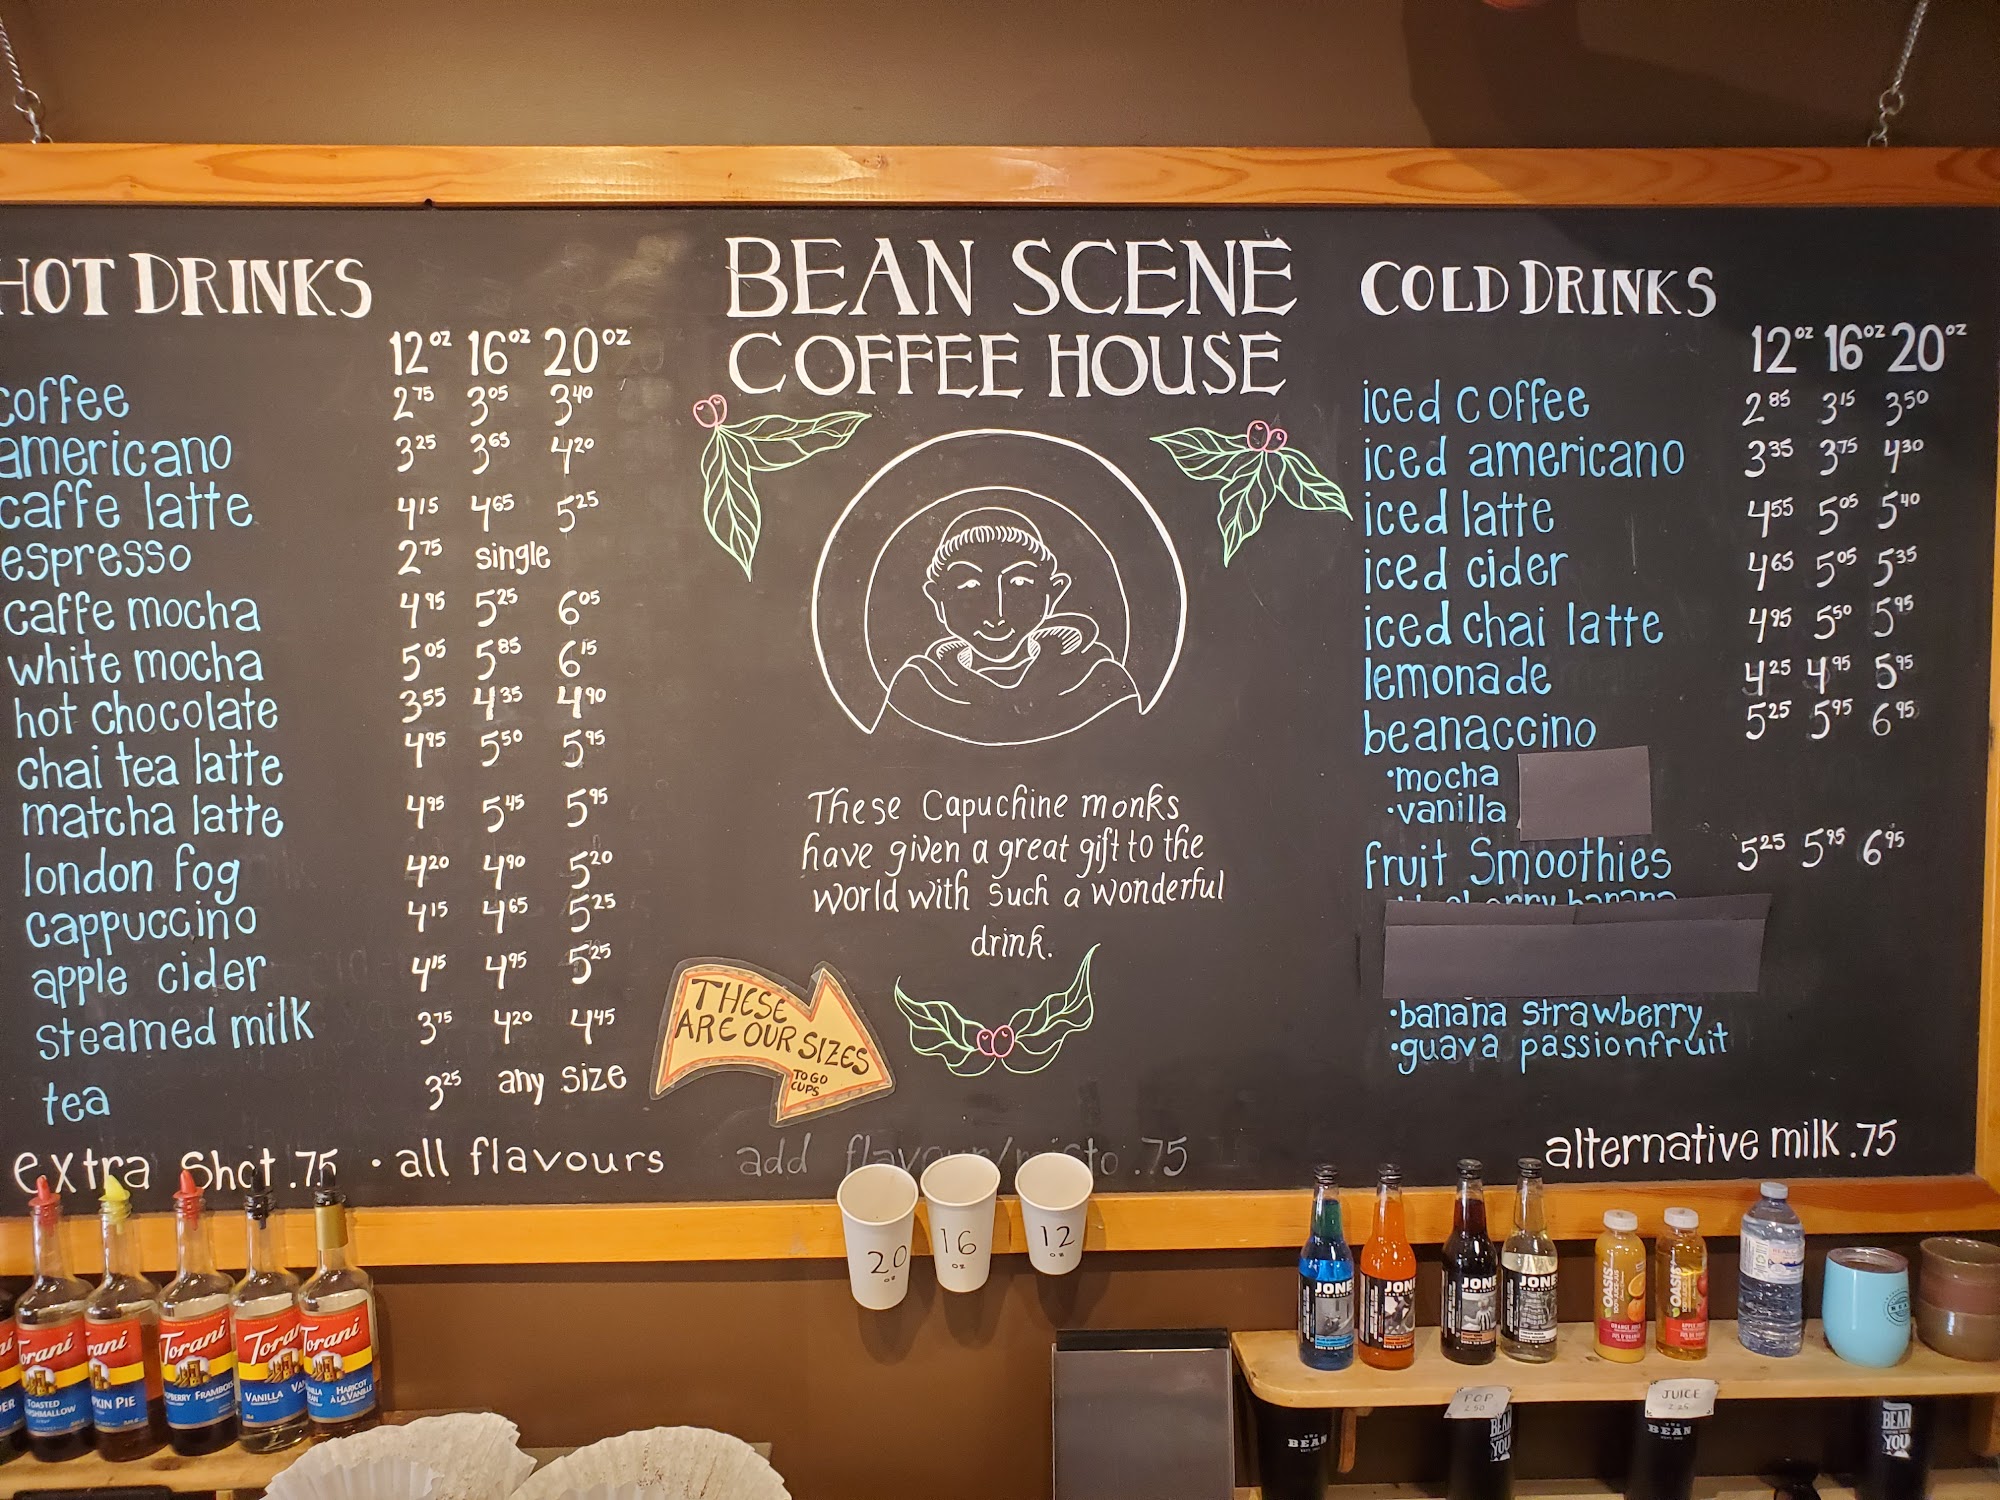 HOT DRINKS
12oz 16oz 20oz
coffee 2.75 3.05 3.40
americano 3.25 3.65 4.20
caffe latte 4.15 4.65 5.25
espresso 2.75 single
caffe mocha 4.95 5.25 6.05
white mocha 5.05 5.85 6.15
hot chocolate 3.55 4.35 4.90
chai tea latte 4.95 5.50 5.95
matcha latte 4.95 5.45 5.95
london fog 4.20 4.90 5.20
cappuccino 4.15 4.65 5.25
apple cider 4.15 4.95 5.25
steamed milk 3.75 4.20 4.45
tea 3.25 any size
extra shot .75 • all flavours
BEAN SCENE
COFFEE HOUSE
These Capuchine monks
have given a great gift to the
world with such a wonderful
drink.
THESE
ARE OUR SIZES
TO GO
CUPS
add flavour/misto .75
COLD DRINKS
12oz 16oz 20oz
iced coffee 2.85 3.15 3.50
iced americano 3.35 3.75 4.30
iced latte 4.55 5.05 5.40
iced cider 4.65 5.05 5.35
iced chai latte 4.95 5.50 5.95
lemonade 4.25 4.95 5.95
beanaccino 5.25 5.95 6.95
• mocha
• vanilla
fruit smoothies 5.25 5.95 6.95
banana
• banana strawberry
• guava passionfruit
alternative milk .75
20 oz
16 oz
12 oz
Torani
Torani
KIN PIE
Torani
FRAMBOIS
Torani
VANILLA
Torani
HARICOT
À LA VANILLE
JONE
JONE
JONE
JONE
OASIS
OASIS
POP
2.50
JUICE
2.25
THE
BEAN
BEAN
YOU
THE
BEAN
BEAN
YOU